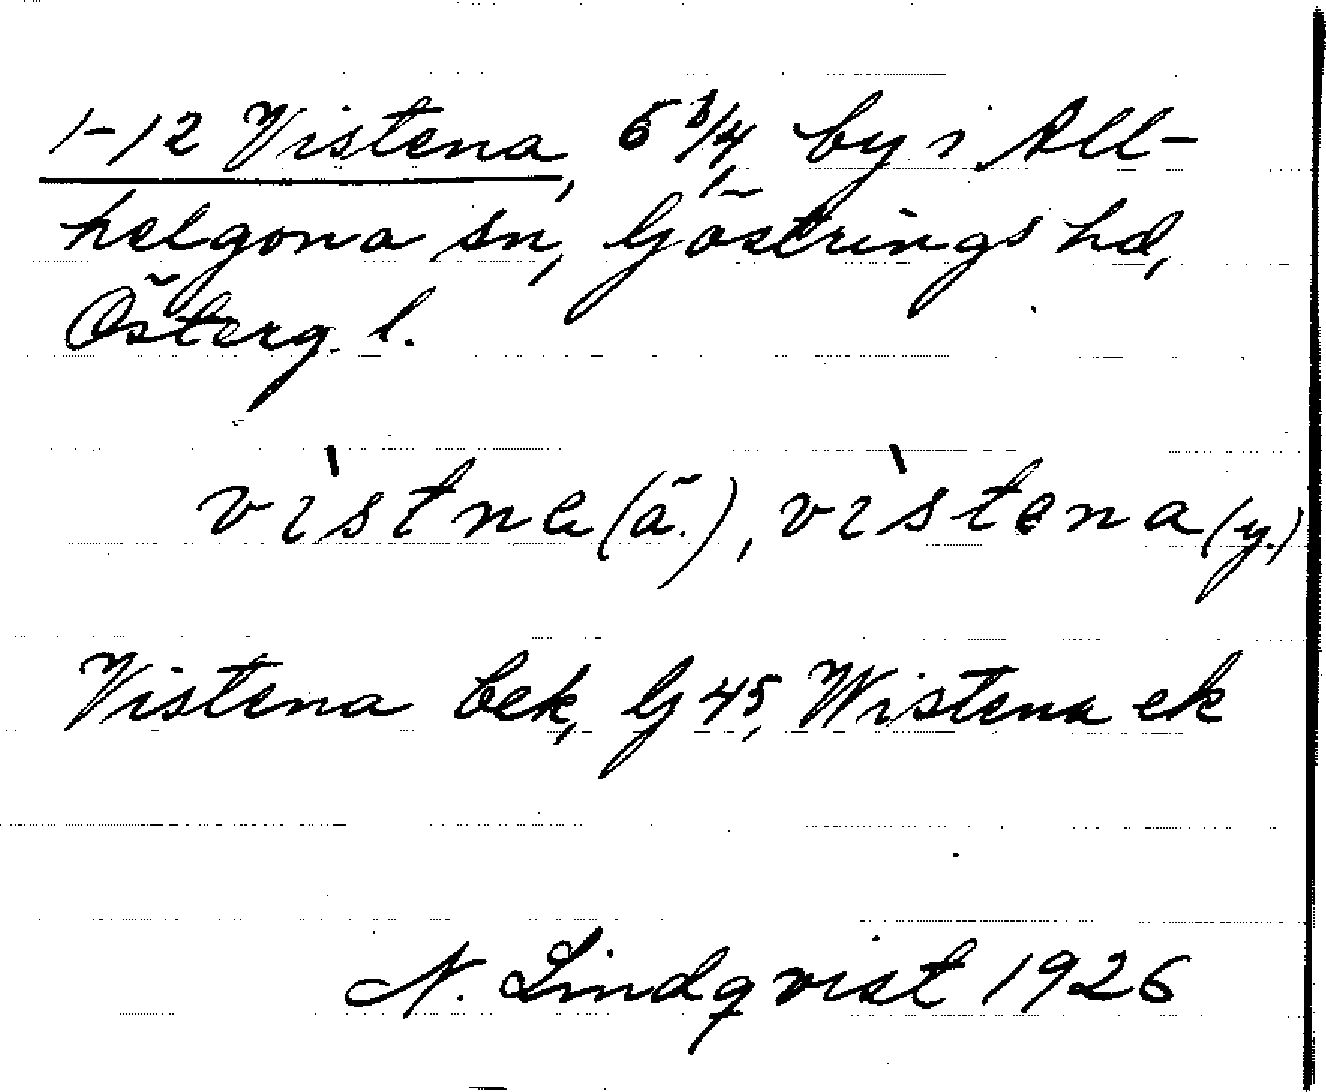 1-12 Vistena, 6 1/4, by i All-
helgona sn, Göstrings hd,
Österg. l.
vìstna (ä.), vìstena (y.)
Vistena bek, G 45, Wistena ek
N. Lindqvist 1926